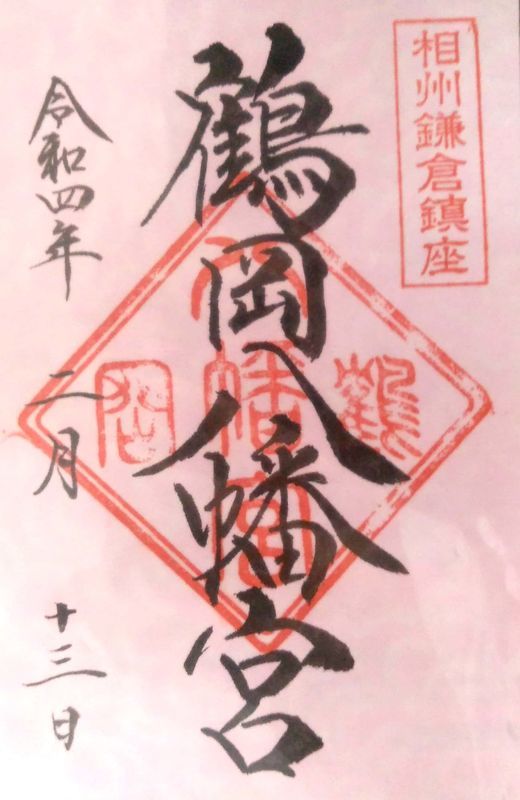 相州鎌倉鎮座
鶴岡八幡宮
鶴岡八幡宮
令和四年二月十三日